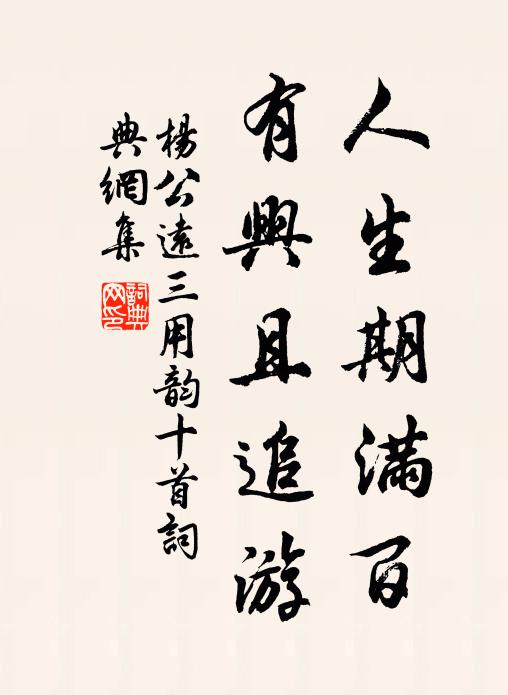 人生期滿百
有興且追游
楊公遠三用韵十首詞
典網集
詞典网印